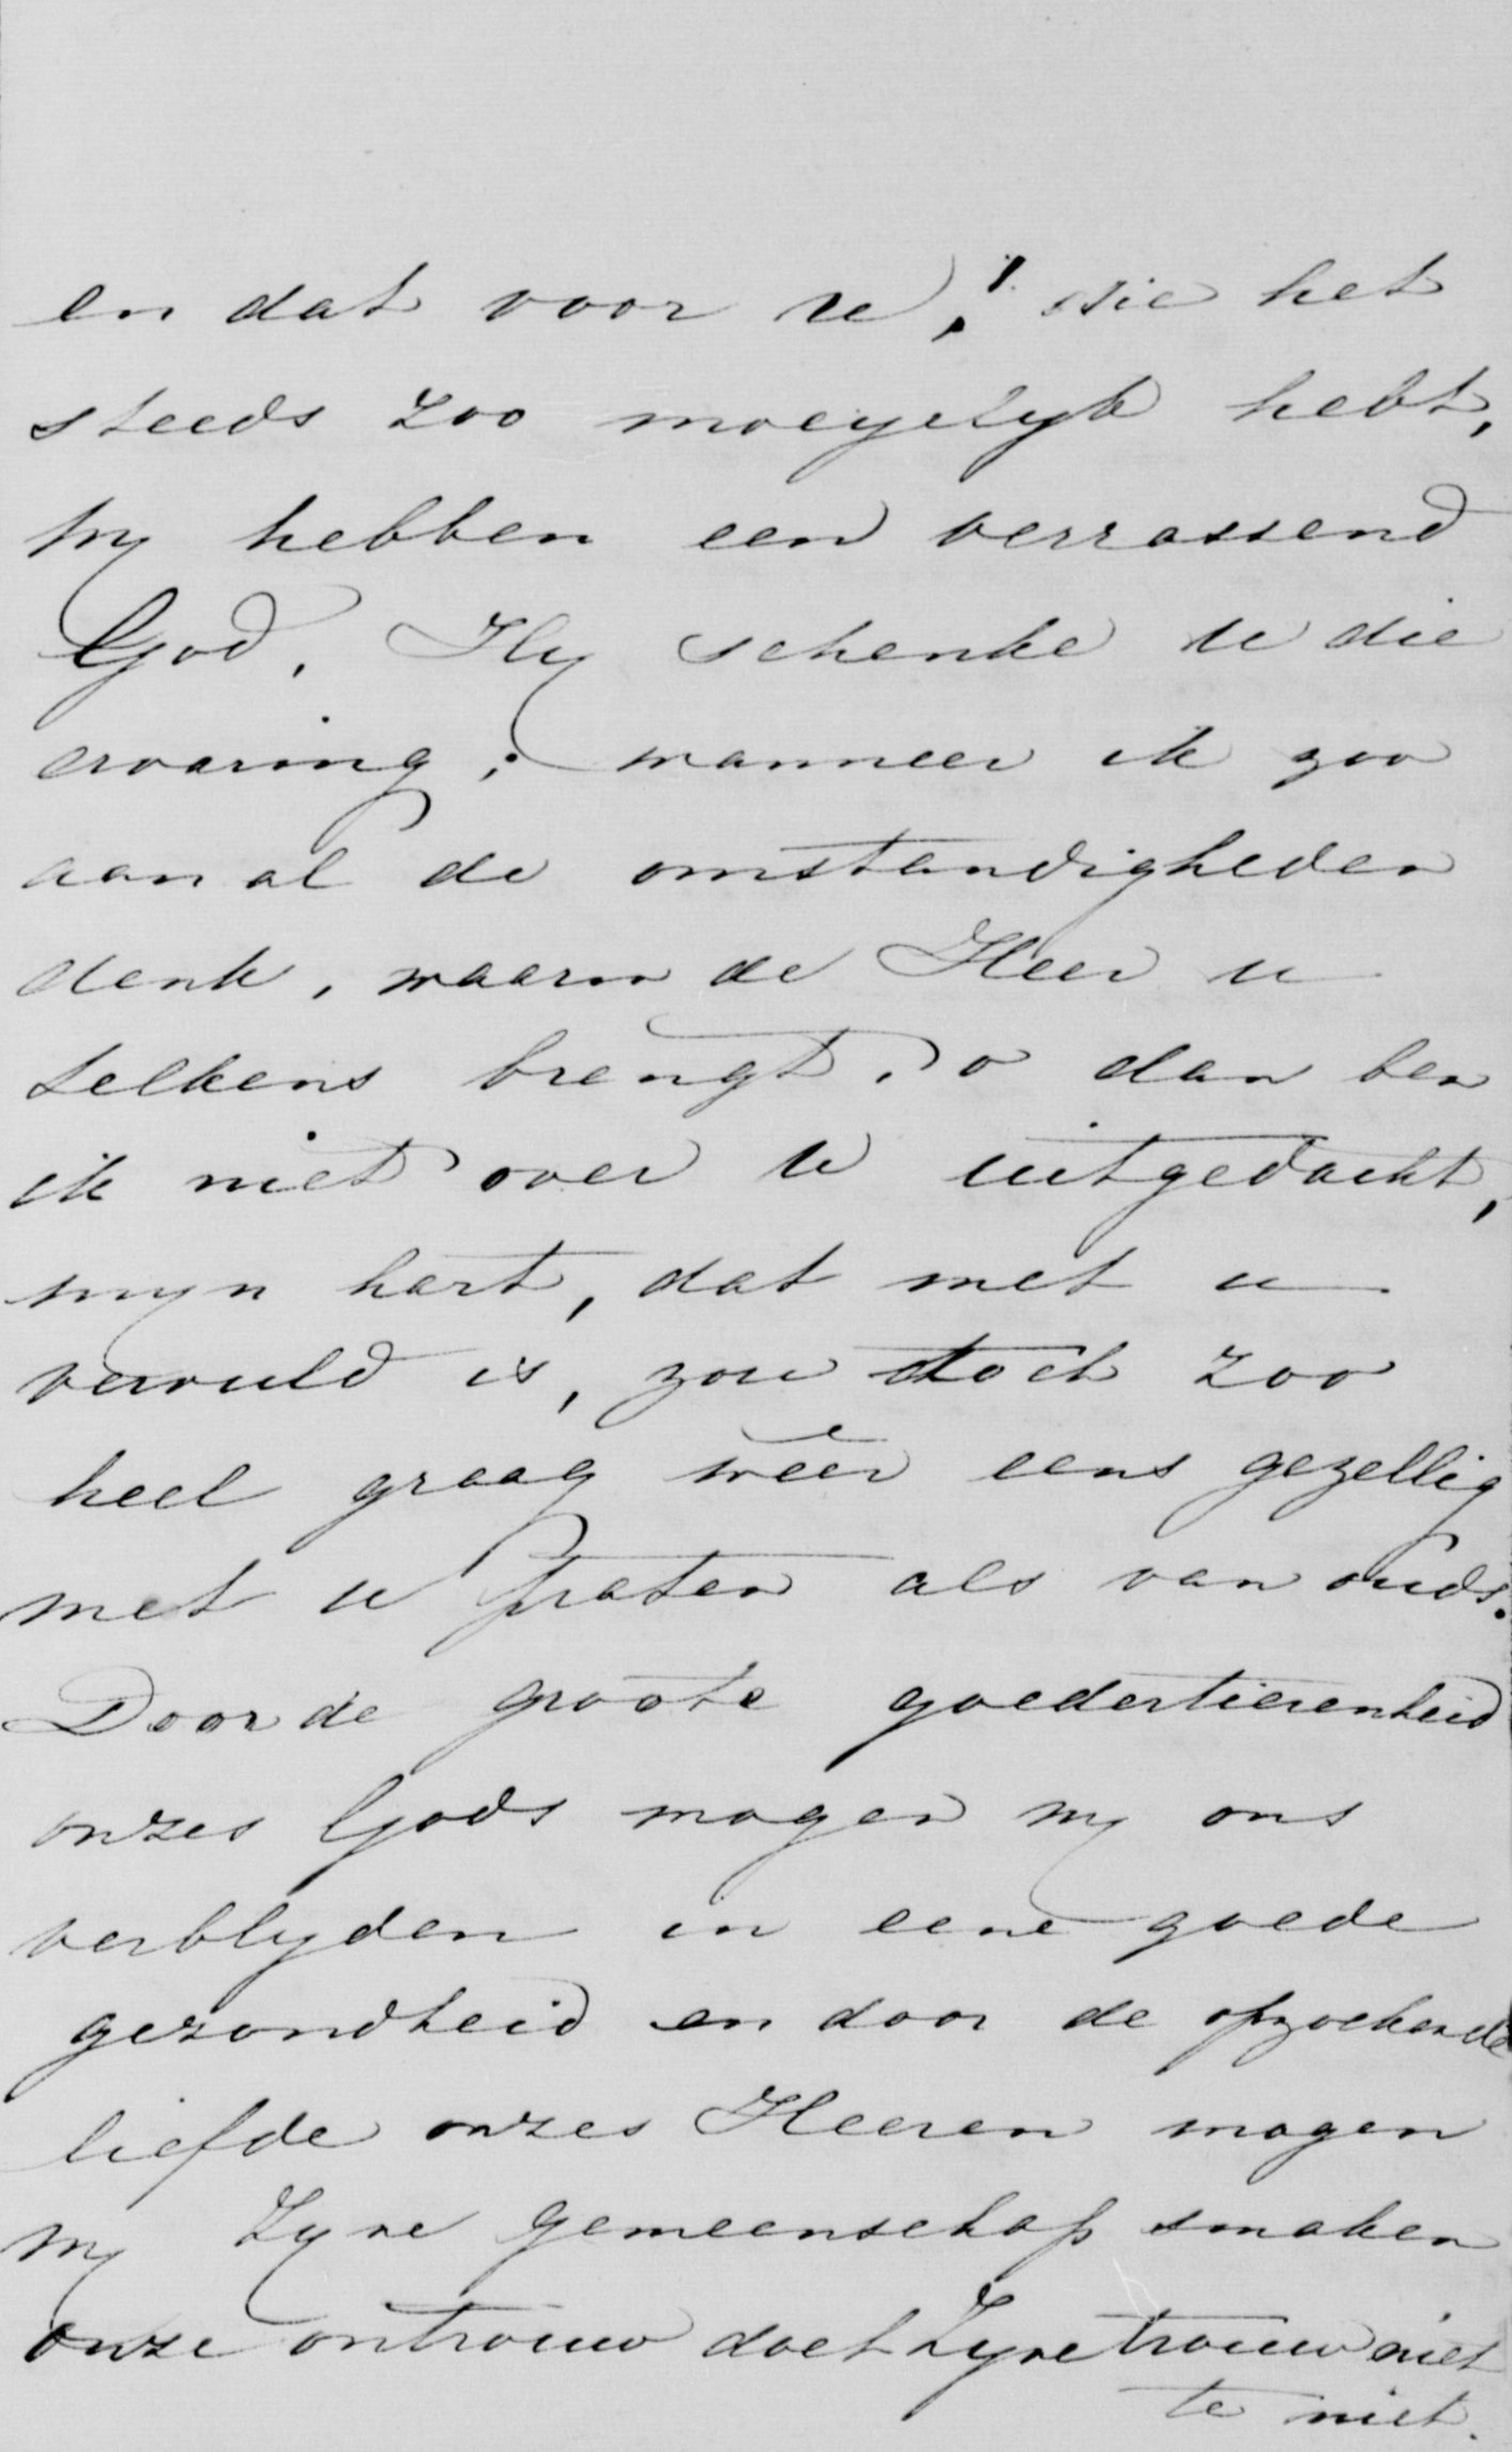 en dat voor u, die het
steeds zoo moeyelyk hebt,
wy hebben een verrassend
God. Hy schenke u die
ervaring; wanneer ik zoo
aan al de omstandigheden
denk, waarin de Heer u
telkens brengt, o dan ben
ik niet over u uitgedacht,
myn hart, dat met u
vervuld is, zou toch zoo
heel graag weer eens gezellig
met u praten als van ouds.
Door de groote goedertierenheid
onzes Gods mogen wy ons
verblyden in eene goede
gezondheid en door de opzoekende
liefde onzes Heeren mogen
wy Zyne gemeenschap smaken
onze ontrouw doet Zyne trouw niet
te niet.